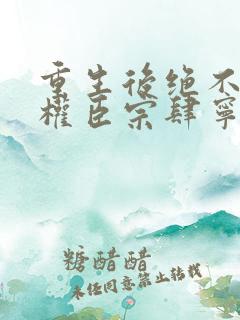 重生後绝不
權臣宗肆寧
糖醋醋
未经同意禁止转载